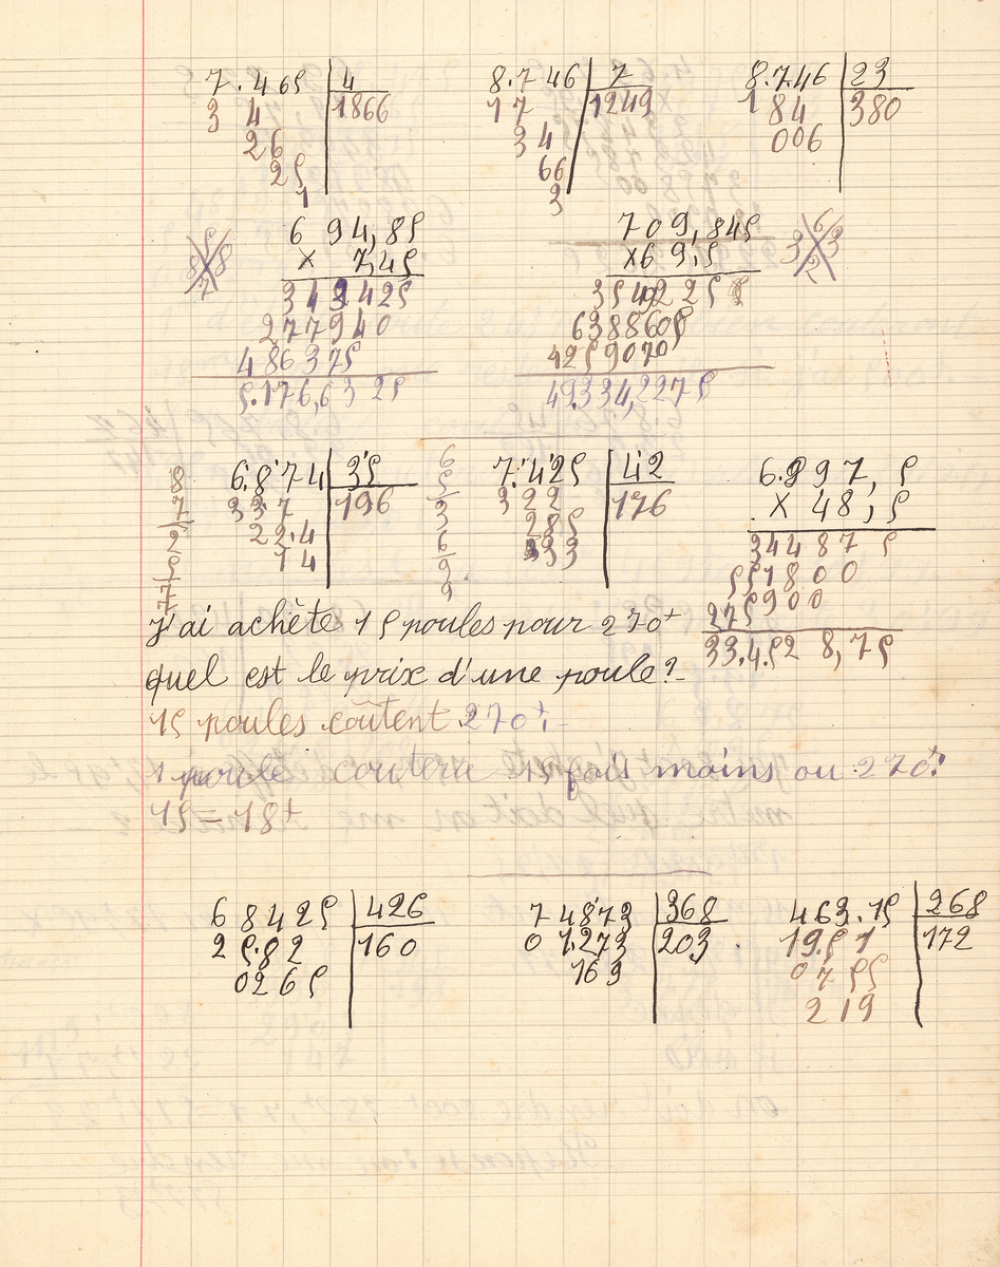 7.465 | 4
3 4 | 1866
26
25
1
8.746 | 7
17 | 1249
34
66
3
8.746 | 23
184 | 380
006
694,85
× 7,45
343425
277940
486375
5.176,6325
5
8 8
7
709,845
×69,5
3549225
6388605
4259070
49.334,2275
6
3 3
2
8
7
2
9
77
6.874 | 35
337 | 196
22.4
14
6
5
3
6
9
9
7.425 | 42
322 | 176
285
333
6.897,5
× 48,5
344875
551800
5900
275
33.4.528,75
j'ai achète 15 poules pour 270f
quel est le prix d'une poule?
15 poules coûtent 270f:
1 poule coutera 15 fois moins ou 270f:
15 = 18f
68425 | 426
25.82 | 160
0265
74873 | 368
01.273 | 203.
169
463.15 | 268
19.51 | 172
0755
219